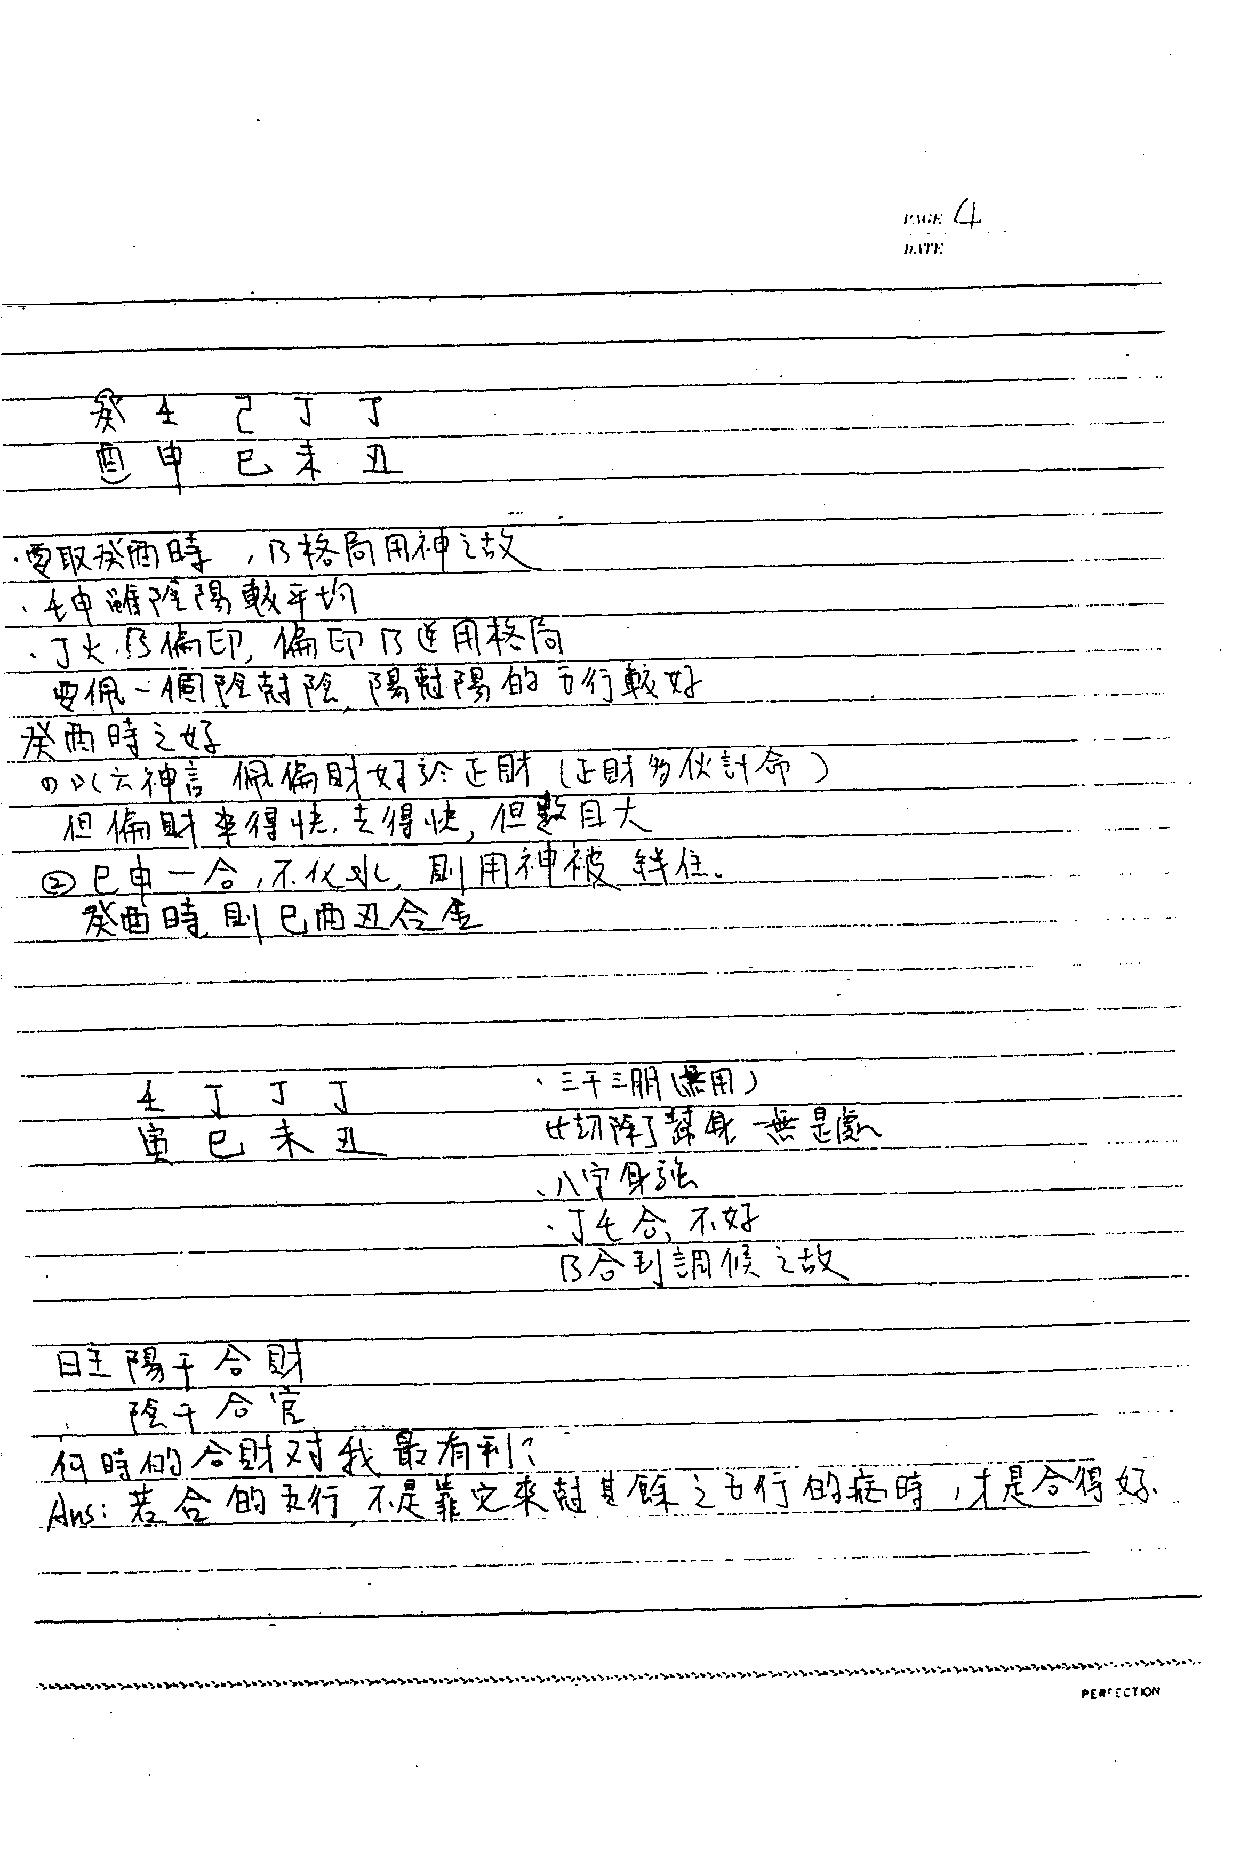 PAGE 4
DATE
癸 壬 己 丁 丁
酉 申 巳 未 丑
·要取癸酉時,乃格局用神之故
·壬申雖陰陽較平均
·丁火乃偏印,偏印乃逆用格局
要佩一個陰尅陰,陽尅陽的五行較好
癸酉時之好
①以六神言 佩偏財好於正財(正財為伙計命)
但偏財來得快,去得快,但數目大
②巳申一合,不化水,則用神被絆住。
癸酉時則巳酉丑合金
壬 丁 丁 丁
寅 巳 未 丑
·三干三朋(無用)
此切除了幫身一無是處
·八字身強
·丁壬合,不好
乃合到調候之故
日主陽干合財
陰干合官
何時的合財對我最有利?
Ans: 若合的五行,不是靠它來尅其餘之五行的病時,才是合得好.
PERFECTION